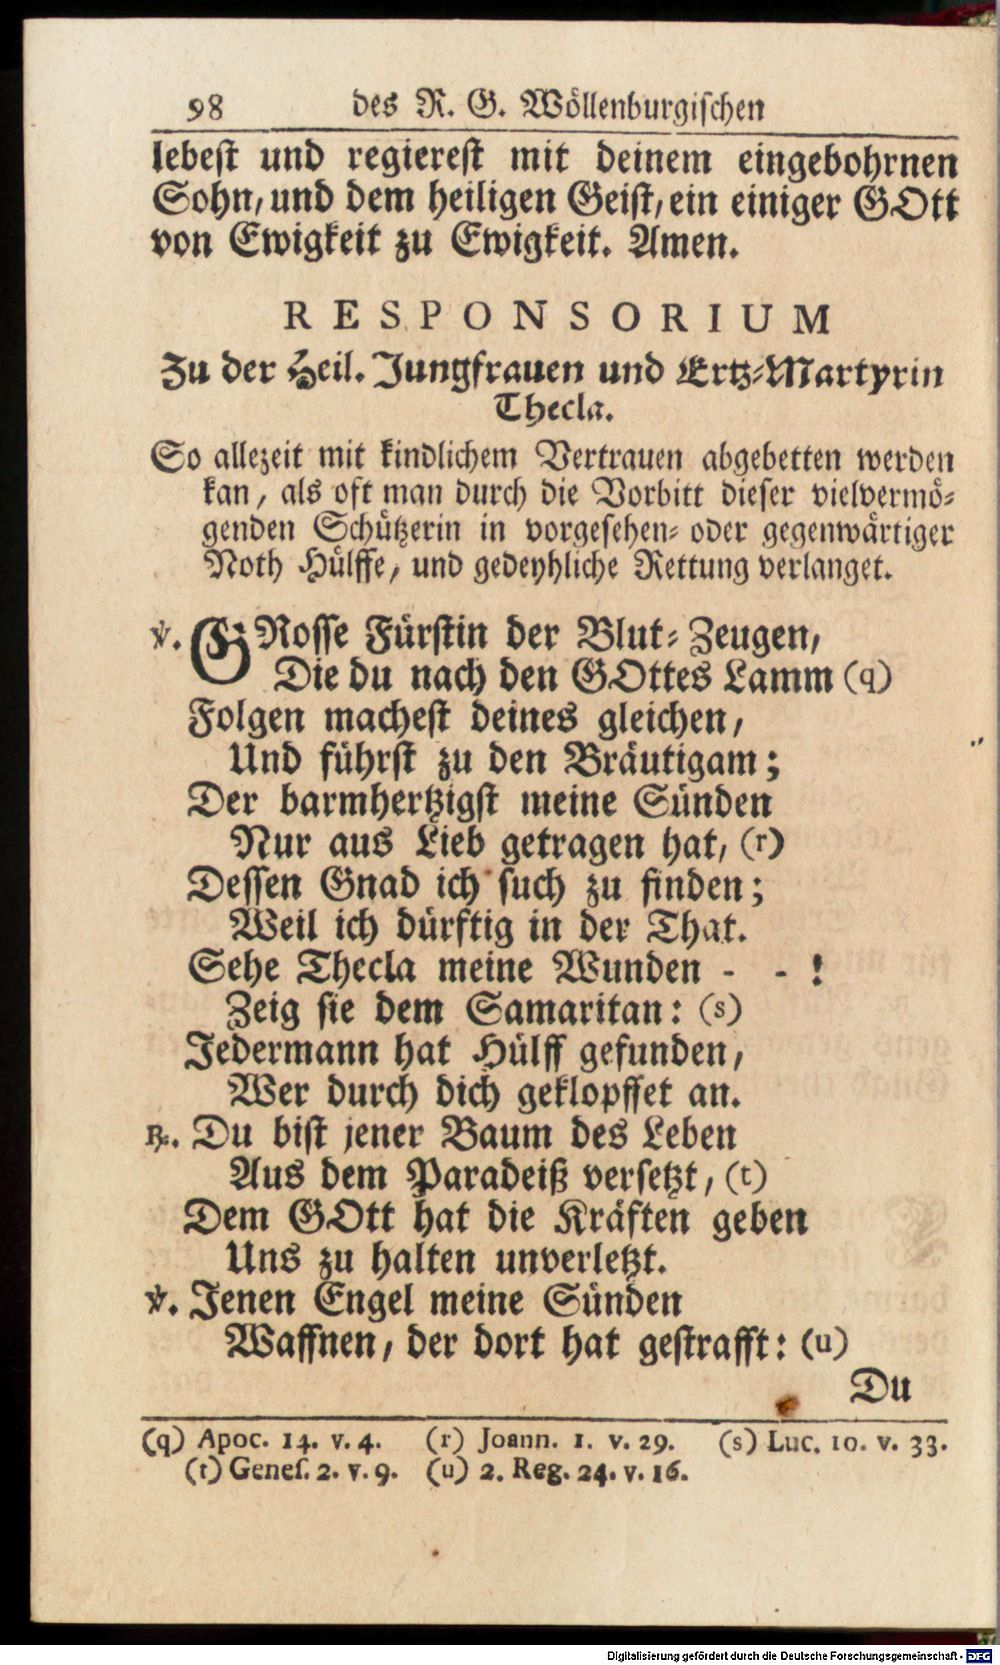 98 des R. G. Wöllenburgischen
lebest und regierest mit deinem eingebohrnen
Sohn, und dem heiligen Geist, ein einiger GOtt
von Ewigkeit zu Ewigkeit. Amen.
RESPONSORIUM
Zu der Heil. Jungfrauen und Ertz-Martyrin
Thecla.
So allezeit mit kindlichem Vertrauen abgebetten werden
kan, als oft man durch die Vorbitt dieser vielvermö-
genden Schützerin in vorgesehen- oder gegenwärtiger
Noth Hülffe, und gedeyhliche Rettung verlanget.
℣. GRosse Fürstin der Blut-Zeugen,
Die du nach den GOttes Lamm (q)
Folgen machest deines gleichen,
Und führst zu den Bräutigam;
Der barmhertzigst meine Sünden
Nur aus Lieb getragen hat, (r)
Dessen Gnad ich such zu finden;
Weil ich dürftig in der That.
Sehe Thecla meine Wunden - - !
Zeig sie dem Samaritan: (s)
Jedermann hat Hülff gefunden,
Wer durch dich geklopffet an.
℟. Du bist jener Baum des Leben
Aus dem Paradeiß versetzt, (t)
Dem GOtt hat die Kräften geben
Uns zu halten unverletzt.
℣. Jenen Engel meine Sünden
Waffnen, der dort hat gestrafft: (u)
Du
(q) Apoc. 14. v. 4. (r) Joann. 1. v. 29. (s) Luc. 10. v. 33.
(t) Genes. 2. v. 9. (u) 2. Reg. 24. v. 16.
Digitalisierung gefördert durch die Deutsche Forschungsgemeinschaft - DFG